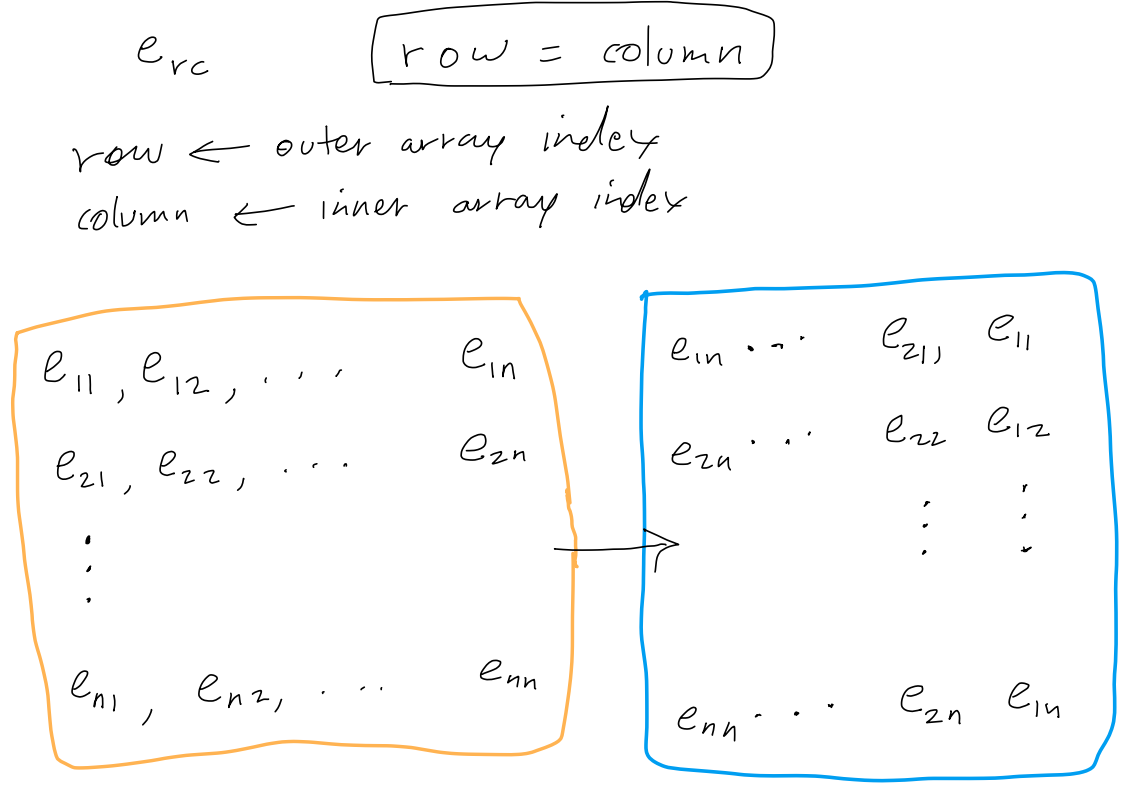 e_rc row = column
row ← outer array index
column ← inner array index
e_11, e_12, . . . e_1n
e_21, e_22, . . . e_2n
⋮
e_n1, e_n2, . . . e_nn
→
e_1n . . . e_211 e_11
e_2n . . . e_22 e_12
⋮ ⋮
e_nn . . . e_2n e_1n